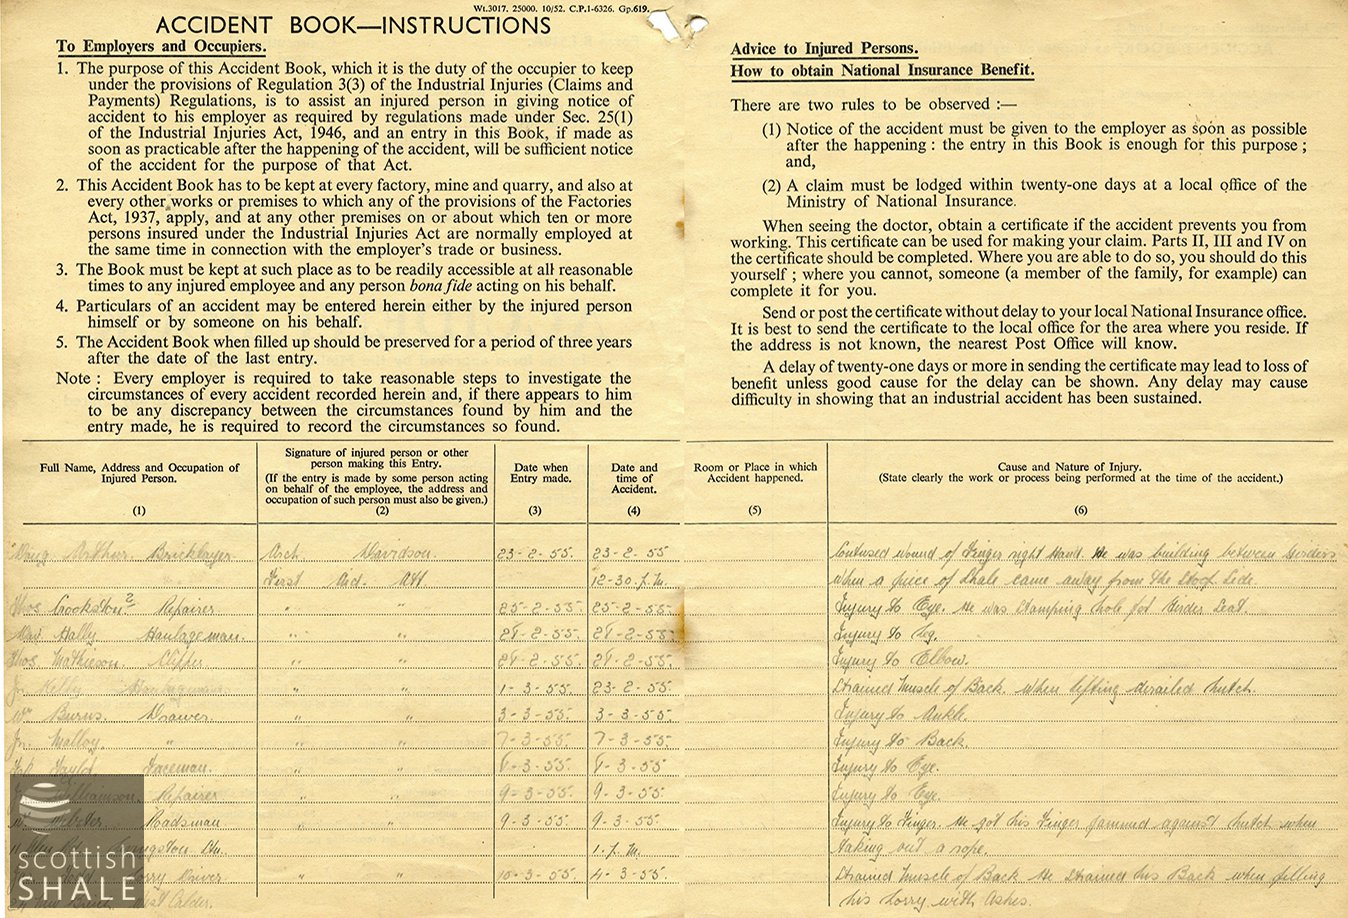 Wt.3017. 25000. 10/52. C.P.1-6326. Gp.619.
ACCIDENT BOOK—INSTRUCTIONS
To Employers and Occupiers.
1. The purpose of this Accident Book, which it is the duty of the occupier to keep
under the provisions of Regulation 3(3) of the Industrial Injuries (Claims and
Payments) Regulations, is to assist an injured person in giving notice of
accident to his employer as required by regulations made under Sec. 25(1)
of the Industrial Injuries Act, 1946, and an entry in this Book, if made as
soon as practicable after the happening of the accident, will be sufficient notice
of the accident for the purpose of that Act.
2. This Accident Book has to be kept at every factory, mine and quarry, and also at
every other works or premises to which any of the provisions of the Factories
Act, 1937, apply, and at any other premises on or about which ten or more
persons insured under the Industrial Injuries Act are normally employed at
the same time in connection with the employer's trade or business.
3. The Book must be kept at such place as to be readily accessible at all reasonable
times to any injured employee and any person bona fide acting on his behalf.
4. Particulars of an accident may be entered herein either by the injured person
himself or by someone on his behalf.
5. The Accident Book when filled up should be preserved for a period of three years
after the date of the last entry.
Note : Every employer is required to take reasonable steps to investigate the
circumstances of every accident recorded herein and, if there appears to him
to be any discrepancy between the circumstances found by him and the
entry made, he is required to record the circumstances so found.
Advice to Injured Persons.
How to obtain National Insurance Benefit.
There are two rules to be observed :—
(1) Notice of the accident must be given to the employer as soon as possible
after the happening : the entry in this Book is enough for this purpose ;
and,
(2) A claim must be lodged within twenty-one days at a local office of the
Ministry of National Insurance.
When seeing the doctor, obtain a certificate if the accident prevents you from
working. This certificate can be used for making your claim. Parts II, III and IV on
the certificate should be completed. Where you are able to do so, you should do this
yourself ; where you cannot, someone (a member of the family, for example) can
complete it for you.
Send or post the certificate without delay to your local National Insurance office.
It is best to send the certificate to the local office for the area where you reside. If
the address is not known, the nearest Post Office will know.
A delay of twenty-one days or more in sending the certificate may lead to loss of
benefit unless good cause for the delay can be shown. Any delay may cause
difficulty in showing that an industrial accident has been sustained.
Full Name, Address and Occupation of
Injured Person.
(1)
Signature of injured person or other
person making this Entry.
(If the entry is made by some person acting
on behalf of the employee, the address and
occupation of such person must also be given.)
(2)
Date when
Entry made.
(3)
Date and
time of
Accident.
(4)
Room or Place in which
Accident happened.
(5)
Cause and Nature of Injury.
(State clearly the work or process being performed at the time of the accident.)
(6)
Arthur Bricklayer Arch Davidson. 23-2-55. 23-2-55 Contused wound of Finger right Hand. He was building between Girders
First Aid. Att 12-30. P.M. When a piece of Shale came away from the Roof Side.
Thos Crookston 2 Repairer " " 25-2-55. 25-2-55. Injury to Eye. He was Stamping hole for Girder Seat.
Hally Haulageman. " " 2-55. 2-55. Injury to Leg.
Thos Mathieson. " " 2-55. 2-55. Injury to Elbow.
Jn Kelly Haulageman " " 1-3-55 23-2-55 Strained Muscle of Back. when lifting derailed hutch.
Wm Burns. Drawer. " " 3-3-55. 3-3-55. Injury to Ankle.
Jn. Malloy. " " " 7-3-55. 7-3-55. Injury to Back.
Taylor Faceman. " " 3-55. 3-55. Injury to Eye.
Williamson. Repairer " " 9-3-55. 9-3-55. Injury to Eye.
Webster Roadsman " " 9-3-55. 9-3-55. Injury to Finger. He got his Finger jammed against hutch when
1. P.M. taking out a rope.
Lorry Driver " " 10-3-55 4-3-55. Strained Muscle of Back He Strained his Back when filling
West Calder. his Lorry with Ashes.
scottish
SHALE